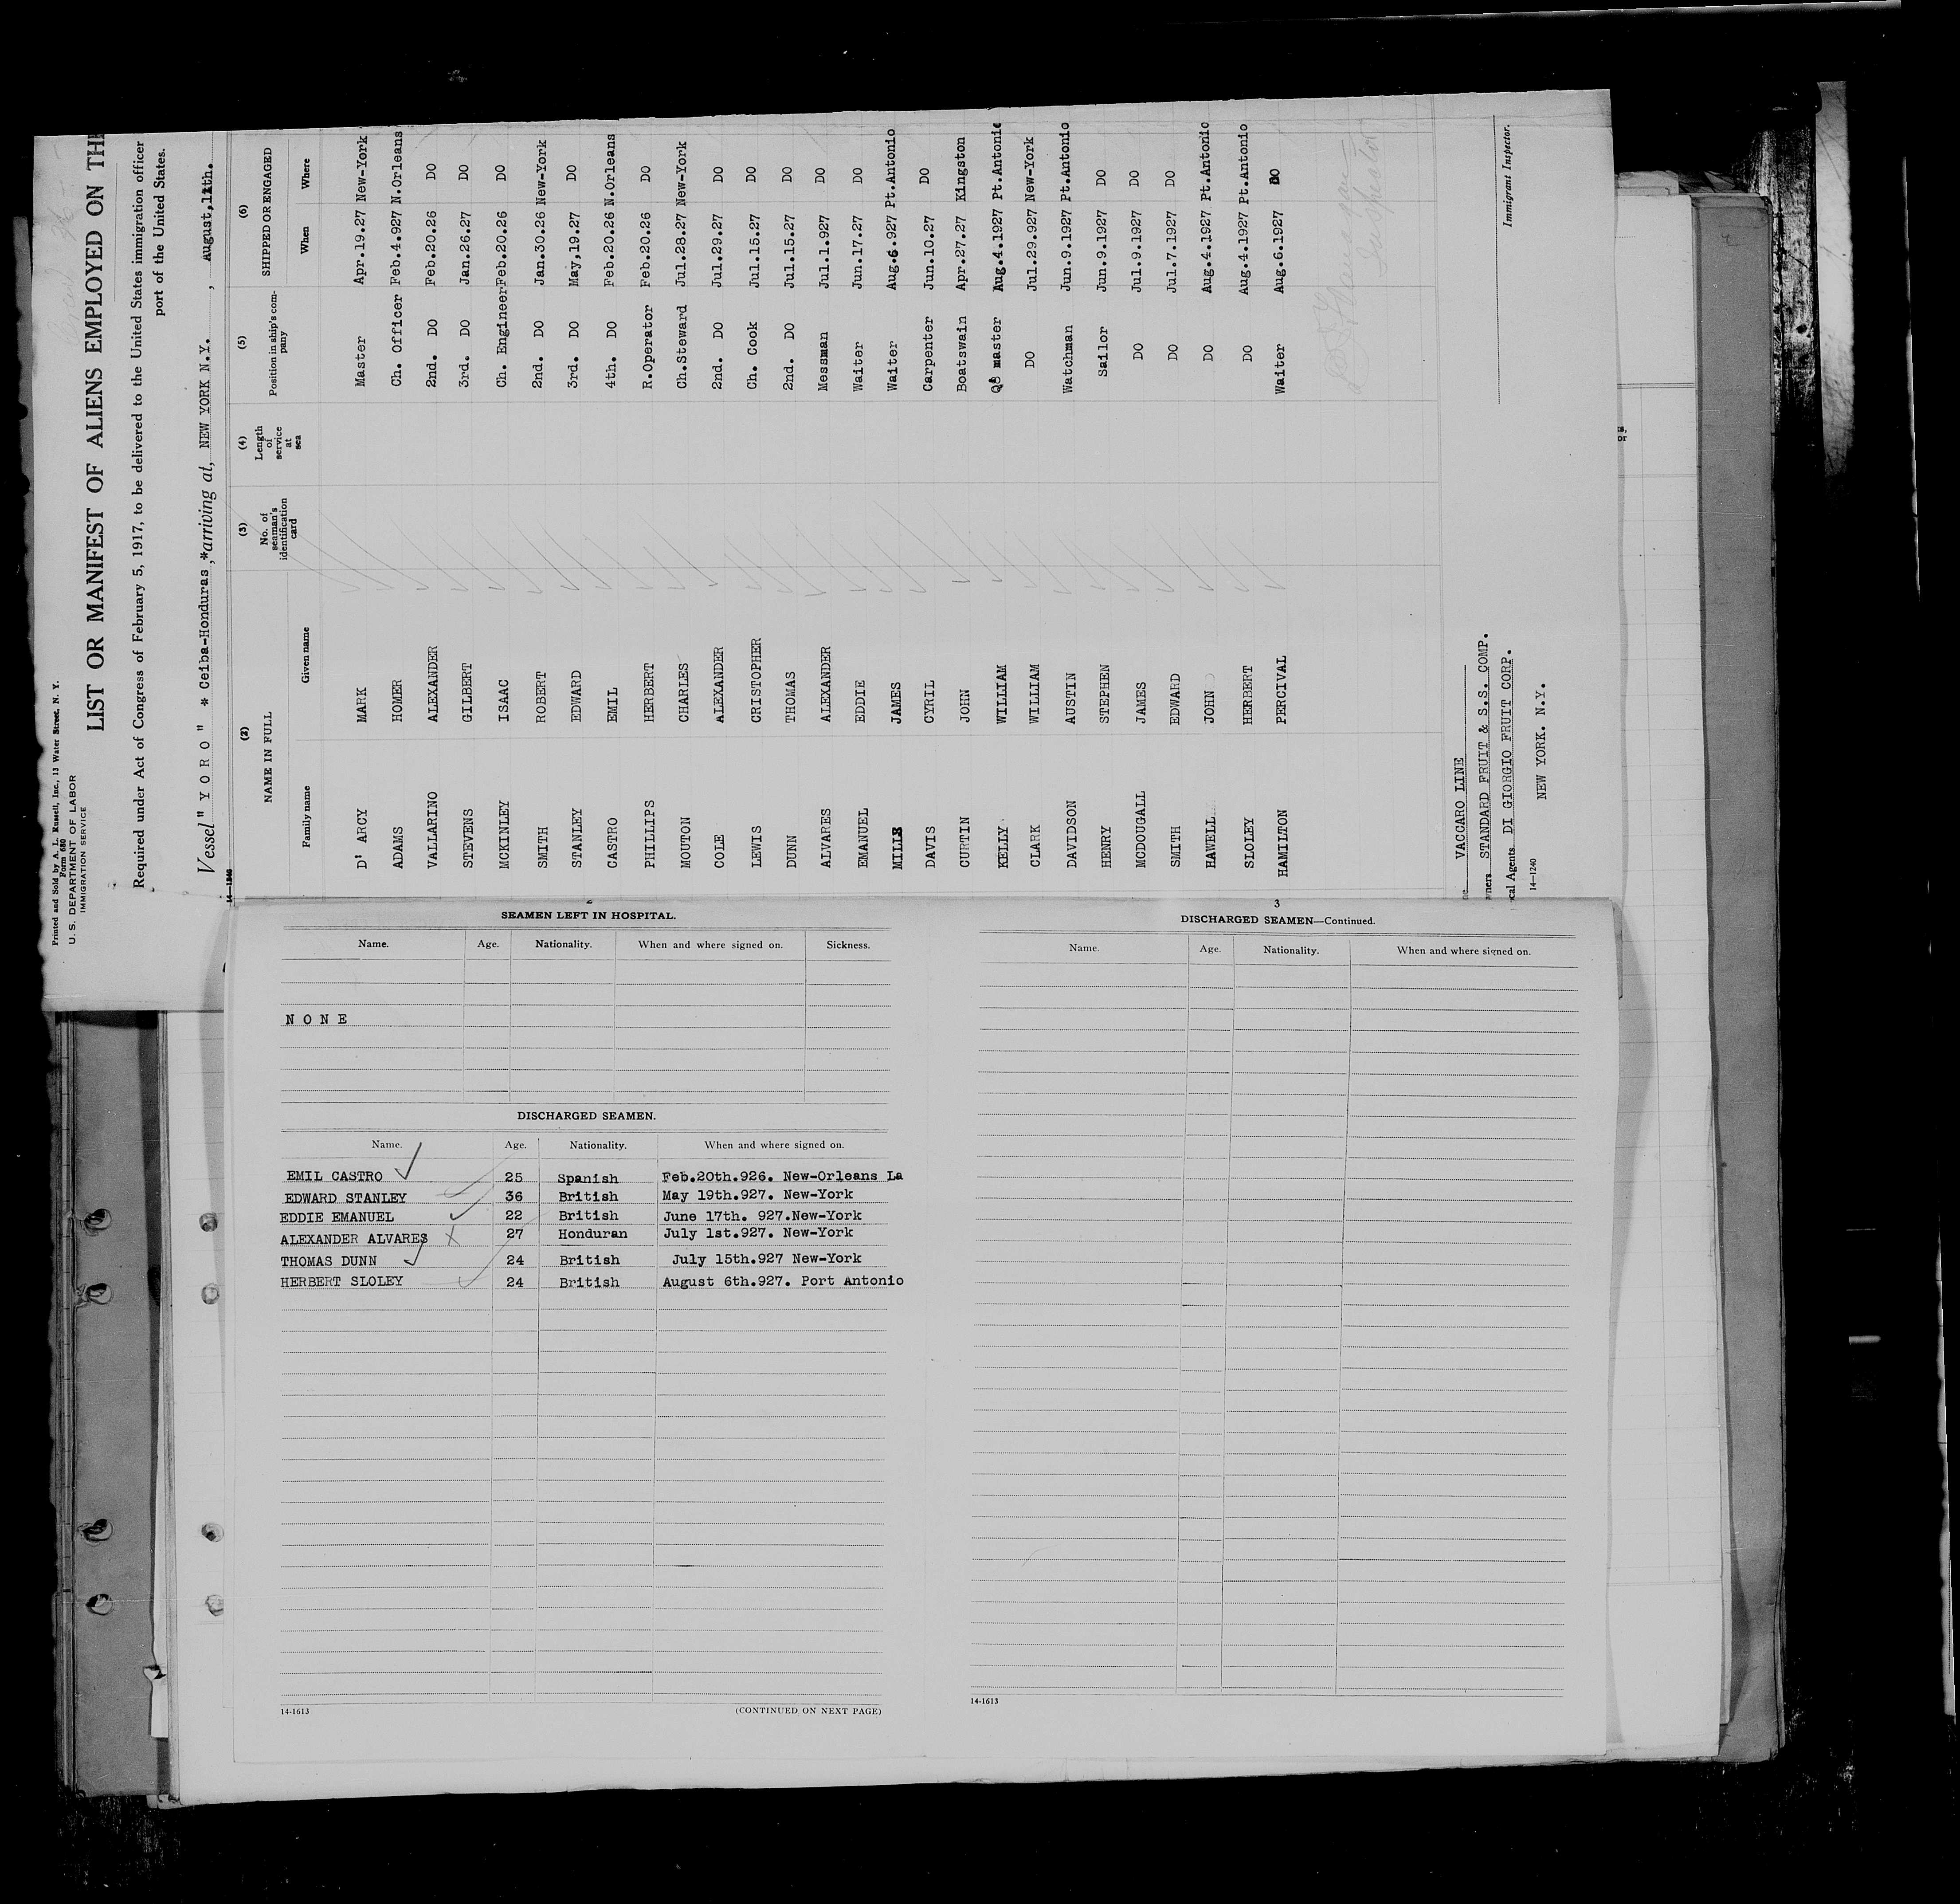 Printed and Sold by A. L. Russell, Inc., 13 Water Street, N. Y.
Form 680
U. S. DEPARTMENT OF LABOR
IMMIGRATION SERVICE
LIST OR MANIFEST OF ALIENS EMPLOYED ON THE
Required under Act of Congress of February 5, 1917, to be delivered to the United States immigration officer
port of the United States.
Vessel " Y O R O " * Ceiba-Honduras ,*arriving at, NEW YORK N.Y. , August,12th.
(2) (3) (4) (5) (6)
NAME IN FULL No. of seaman's identification card Length of service at sea Position in ship's company SHIPPED OR ENGAGED
Family name Given name When Where
D' ARCY MARK Master Apr.19.27 New-York
ADAMS HOMER Ch. Officer Feb.4.927 N.Orleans
VALLARINO ALEXANDER 2nd. DO Feb.20.26 DO
STEVENS GILBERT 3rd. DO Jan.26.27 DO
MCKINLEY ISAAC Ch. Engineer Feb.20.26 DO
SMITH ROBERT 2nd. DO Jan.30.26 New-York
STANLEY EDWARD 3rd. DO May,19.27 DO
CASTRO EMIL 4th. DO Feb.20.26 N.Orleans
PHILLIPS HERBERT R.Operator Feb.20.26 DO
MOUTON CHARLES Ch.Steward Jul.28.27 New-York
COLE ALEXANDER 2nd. DO Jul.29.27 DO
LEWIS CRISTOPHER Ch. Cook Jul.15.27 DO
DUNN THOMAS 2nd. DO Jul.15.27 DO
ALVARES ALEXANDER Messman Jul.1.927 DO
EMANUEL EDDIE Waiter Jun.17.27 DO
MILLS JAMES Waiter Aug.6.927 Pt.Antonio
DAVIS CYRIL Carpenter Jun.10.27 DO
CURTIN JOHN Boatswain Apr.27.27 Kingston
KELLY WILLIAM Q8 master Aug.4.1927 Pt.Antonio
CLARK WILLIAM DO Jul.29.927 New-York
DAVIDSON AUSTIN Watchman Jun.9.1927 Pt.Antonio
HENRY STEPHEN Sailor Jun.9.1927 DO
MCDOUGALL JAMES DO Jul.9.1927 DO
SMITH EDWARD DO Jul.7.1927 DO
HAWELL JOHN DO Aug.4.1927 Pt.Antonio
SLOLEY HERBERT DO Aug.4.1927 Pt.Antonio
HAMILTON PERCIVAL Waiter Aug.6.1927 DO
VACCARO LINE
STANDARD FRUIT & S.S. COMP.
cal Agents DI GIORGIO FRUIT CORP.
NEW YORK. N.Y.
14—1240
Immigrant Inspector.
2
SEAMEN LEFT IN HOSPITAL.
Name. Age. Nationality. When and where signed on. Sickness.
N O N E
DISCHARGED SEAMEN.
Name. Age. Nationality. When and where signed on.
EMIL CASTRO 25 Spanish Feb.20th.926. New-Orleans La
EDWARD STANLEY 36 British May 19th.927. New-York
EDDIE EMANUEL 22 British June 17th. 927.New-York
ALEXANDER ALVARES X 27 Honduran July 1st.927. New-York
THOMAS DUNN 24 British July 15th.927 New-York
HERBERT SLOLEY 24 British August 6th.927. Port Antonio
14-1613 (CONTINUED ON NEXT PAGE)
3
DISCHARGED SEAMEN—Continued.
Name. Age. Nationality. When and where signed on.
14-1613